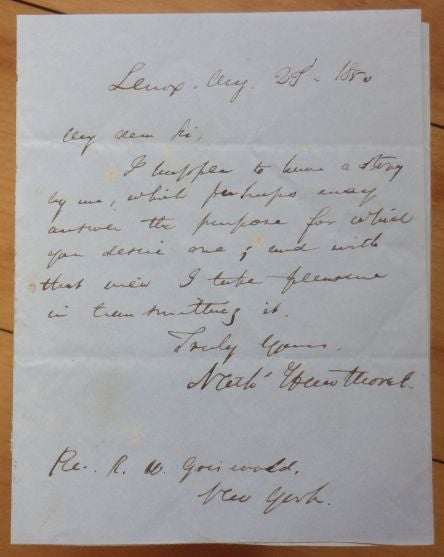 Lenox. Aug. 28th 1850
My dear Sir,
I happen to have a story
by me, which perhaps may
answer the purpose for which
you desire one; and with
that view I take pleasure
in transmitting it.
Truly Yours,
Nathl Hawthorne.
Rev. R. W. Griswold.
New York.